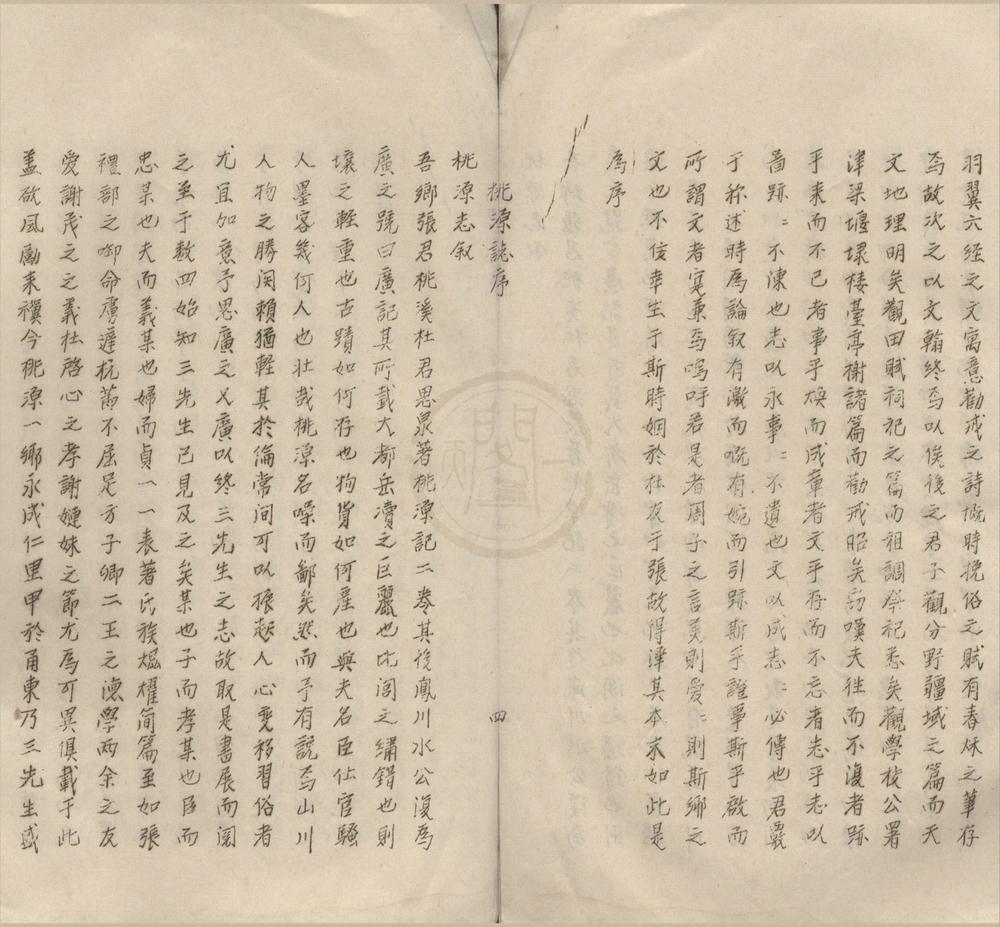 羽翼六经之文寓意勸戒之詩慨時挽俗之賦有春秋之華存
焉故次之以文翰終焉以俟後之君子觀分野疆域之篇而天
文地理明矣觀田賦祠祀之篇而祖調祭祀悉矣觀學校公署
津梁堰埭楼臺亭榭諸篇而勸戒昭矣嘆夫往而不復者跡
乎来而不已者事乎煥而成章者文乎存而不忘者志乎志以
啚跡〻不陳也志以永事〻不遺也文以成志〻必傳也君覈
于称述時爲論叙有激而慨有婉而引跡斯乎證事斯乎啟而
所謂文者寔兼焉嗚呼君是者周子之言美則愛〻則斯鄉之
文也不佞幸生于斯時姻於杜友于張故得津其本末如此是
爲序
桃源誌序
桃源志叙
吾鄉張君桃溪杜君思泉著桃源記二卷其後鳳川水公復爲
廣之號曰廣記其所載大都岳瀆之巨麗也比閭之繡錯也則
壤之軽重也古蹟如何存也物貨如何産也與夫名臣仕宦騷
人墨客幾何人也壮哉桃源名噪而鄙矣悲而予有說焉山川
人物之勝闵賴猶軽其於倫常间可以振起人心变移習俗者
尤宜加意予思廣之又廣以終三先生之志故取是書展而阅
之至于数四始知三先生已見及之矣某也子而孝某也臣而
忠某也夫而義某也婦而貞一一表著氏族焜耀简篇至如張
禮部之啣命虜遅抗節不屈足方子卿二王之德學两余之友
愛謝茂之之義杜啓心之孝謝娷妹之節尤爲可異俱載于此
盖欲風勵来禩今桃源一鄉永成仁里甲於甬東乃三先生盛
四